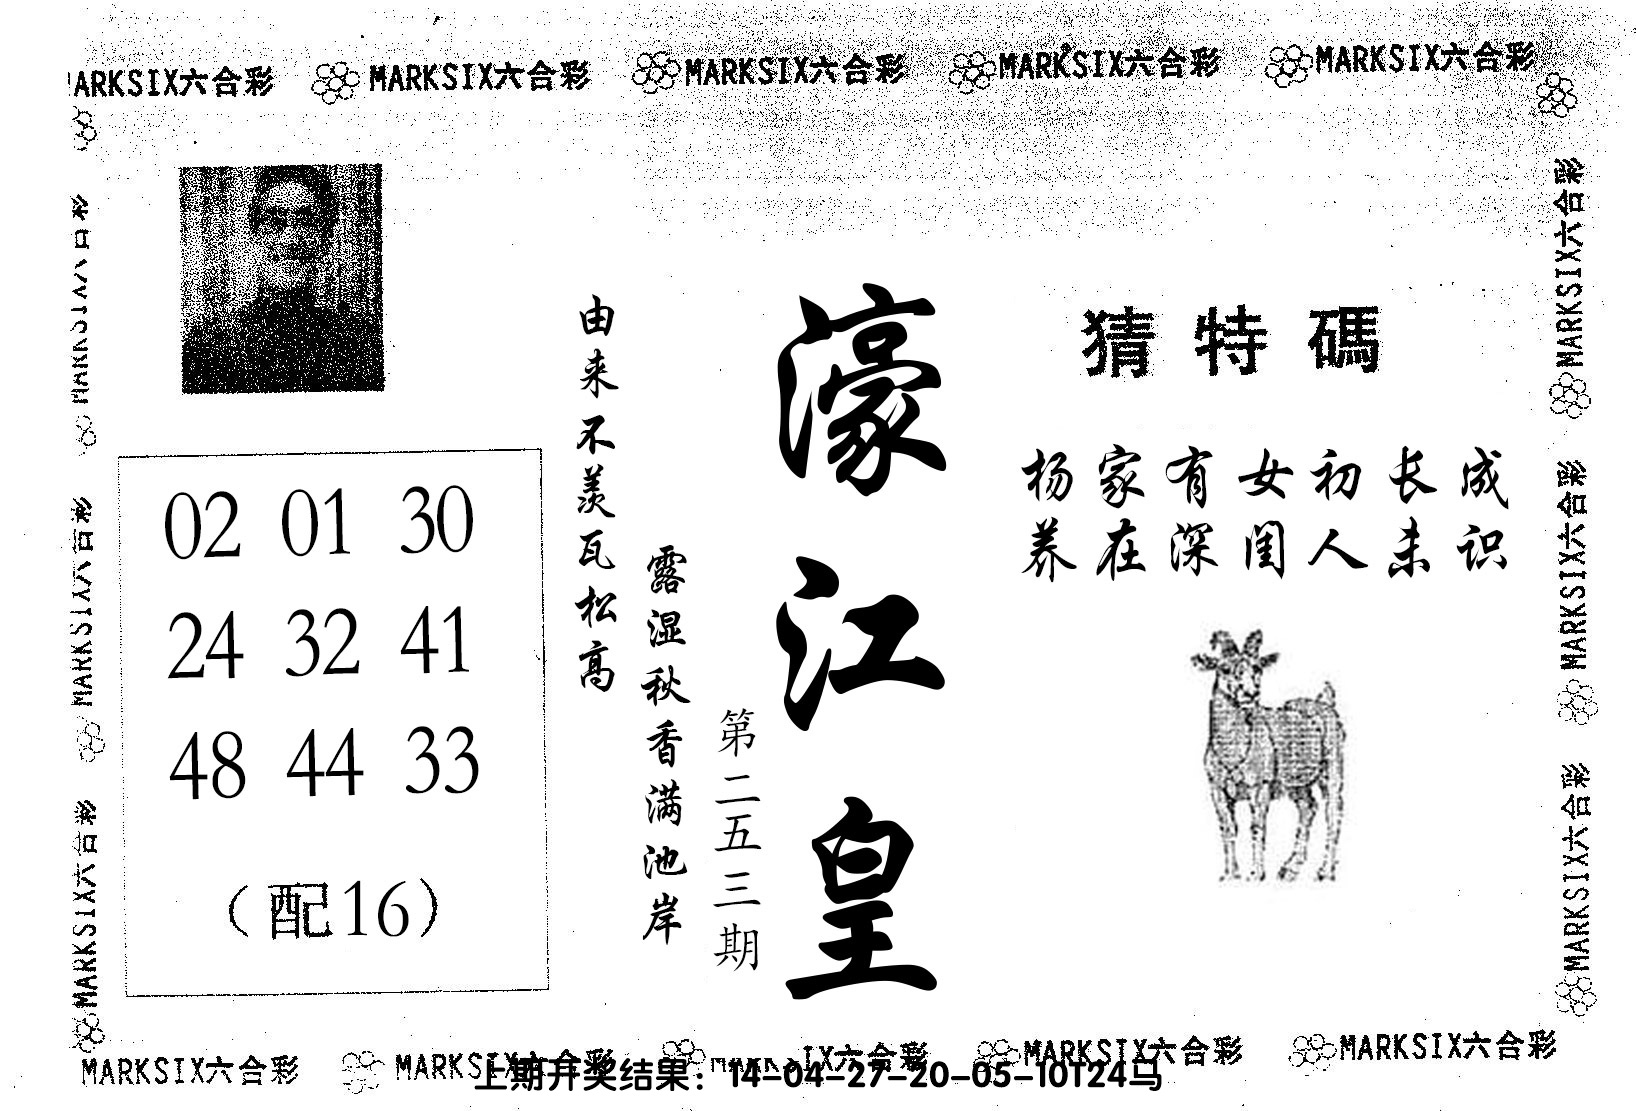 MARKSIX六合彩 MARKSIX六合彩 MARKSIX六合彩 MARKSIX六合彩 MARKSIX六合彩
猜特碼
杨家有女初长成
养在深闺人未识
濠江皇
第二五三期
露湿秋香满池岸
由来不羡瓦松高
02 01 30
24 32 41
48 44 33
（配16）
MARKSIX六合彩
MARKSIX六合彩
MARKSIX六合彩
MARKSIX六合彩
MARKSIX六合彩
MARKSIX六合彩
MARKSIX六合彩 MARKSIX六合彩 MARKSIX六合彩 MARKSIX六合彩
上期开奖结果：14-04-27-20-05-10T24马